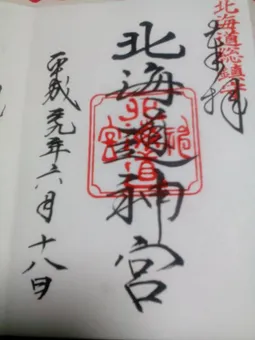 北海道総鎮守
奉拝
北海道神宮
北海道神宮
平成廿九年六月十八日